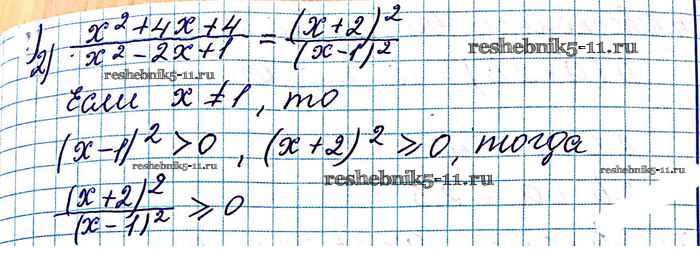 2) (x² + 4x + 4)/(x² - 2x + 1) = (x + 2)²/(x - 1)²
reshebnik5-11.ru reshebnik5-11.ru
Если x ≠ 1, то
(x - 1)² > 0, (x + 2)² ⩾ 0, тогда
reshebnik5-11.ru reshebnik5-11.ru reshebnik5-11.ru
(x + 2)²/(x - 1)² ⩾ 0